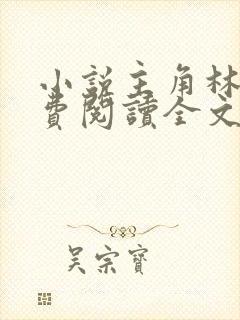 小説主角林
費閱讀全文
吴宗寶